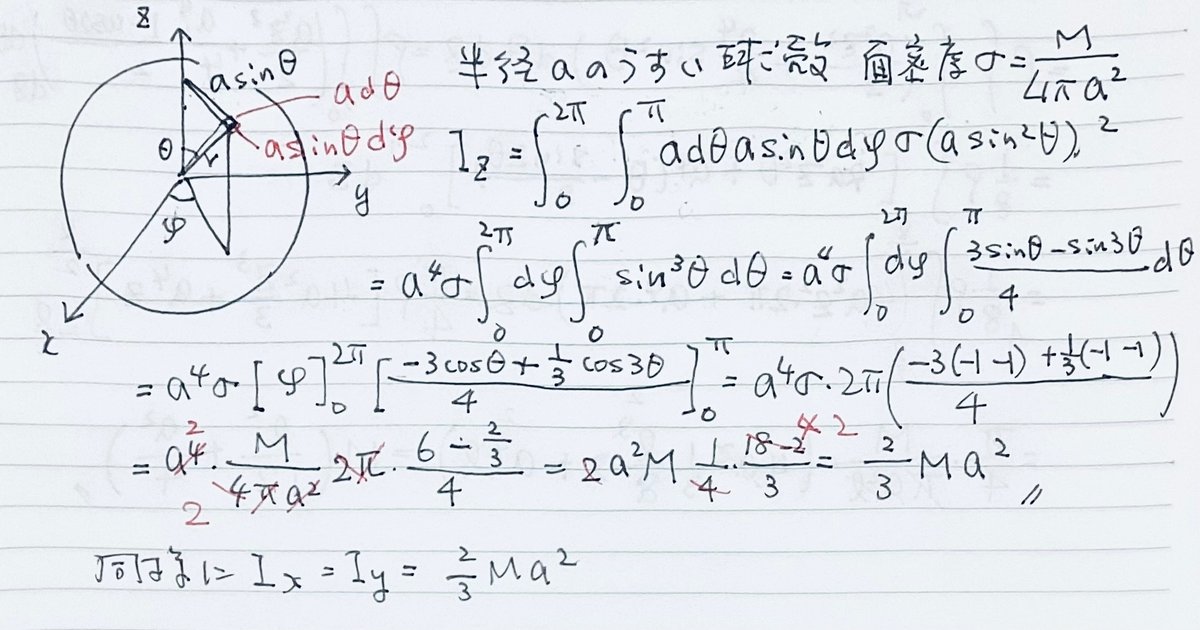 z
a sinθ
adθ
a sinθdφ
θ r
y
φ
x
半径aのうすい球殻 面密度σ = M/4πa²
I_z = ∫₀^{2π} ∫₀^{π} adθ a sinθ dφ σ(a sin²θ)²
= a⁴σ ∫₀^{2π} dφ ∫₀^{π} sin³θ dθ = a⁴σ ∫₀^{2π} dφ ∫₀^{π} (3sinθ - sin3θ)/4 dθ
= a⁴σ [φ]₀^{2π} [(-3cosθ + 1/3 cos3θ)/4]₀^{π} = a⁴σ・2π((-3(-1-1) + 1/3(-1-1))/4)
= a⁴・M/4πa² 2π・(6 - 2/3)/4 = 2a²M 1/4・(18-2)/3 = 2/3 Ma² //
同様に I_x = I_y = 2/3 Ma²